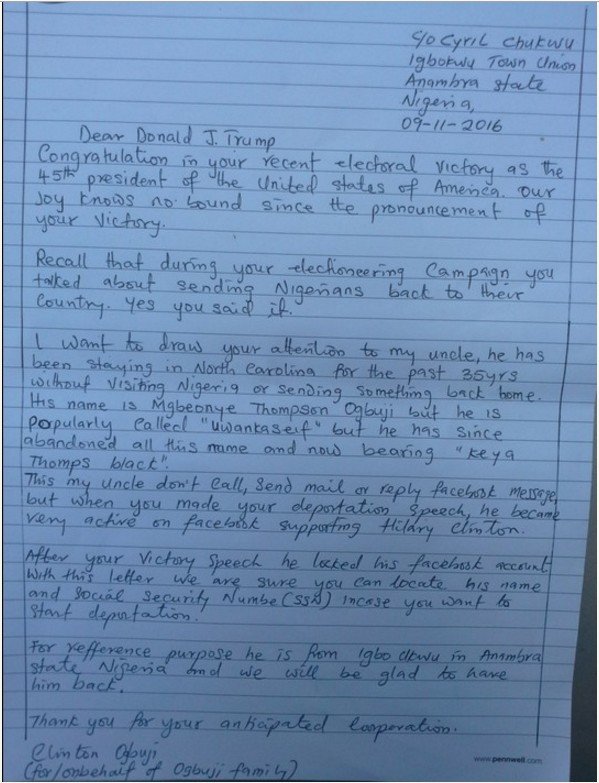 C/O Cyril Chukwu
Igbokwu Town Union
Anambra State
Nigeria,
09-11-2016
Dear Donald J. Trump
Congratulation in your recent electoral victory as the
45th president of the United States of America. Our
Joy knows no bound since the pronouncement of
your victory.
Recall that during your electioneering Campaign you
talked about sending Nigerians back to their
Country. Yes you said it.
I want to draw your attention to my uncle, he has
been staying in North Carolina for the past 35yrs
without visiting Nigeria or sending something back home.
His name is Mgbeonye Thompson Ogbuji but he is
popularly called "Uwankaseif" but he has since
abandoned all this name and now bearing "Keya
Thomps black".
This my uncle don't call, send mail or reply facebook message,
but when you made your deportation speech, he became
very active on facebook supporting Hilary Clinton.
After your Victory Speech he locked his facebook account
With this letter we are sure you can locate his name
and Social Security Numbe(SSN) incase you want to
start deportation.
For refference purpose he is from Igbo Ukwu in Anambra
state Nigeria and we will be glad to have
him back.
Thank you for your anticipated Corporation.
Clinton Ogbuji
(for/onbehalf of Ogbuji family)
www.pennwell.com